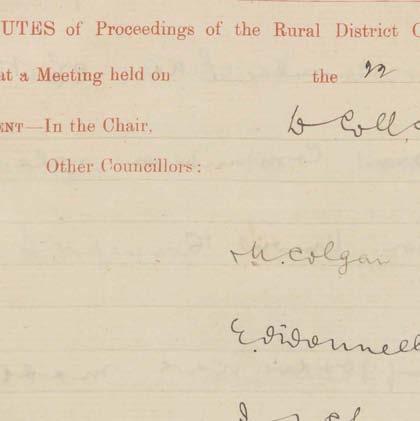 UTES of Proceedings of the Rural District C
at a Meeting held on the 22
ENT—In the Chair, D Coll
Other Councillors:
M. Colgan
E. O'Donnell